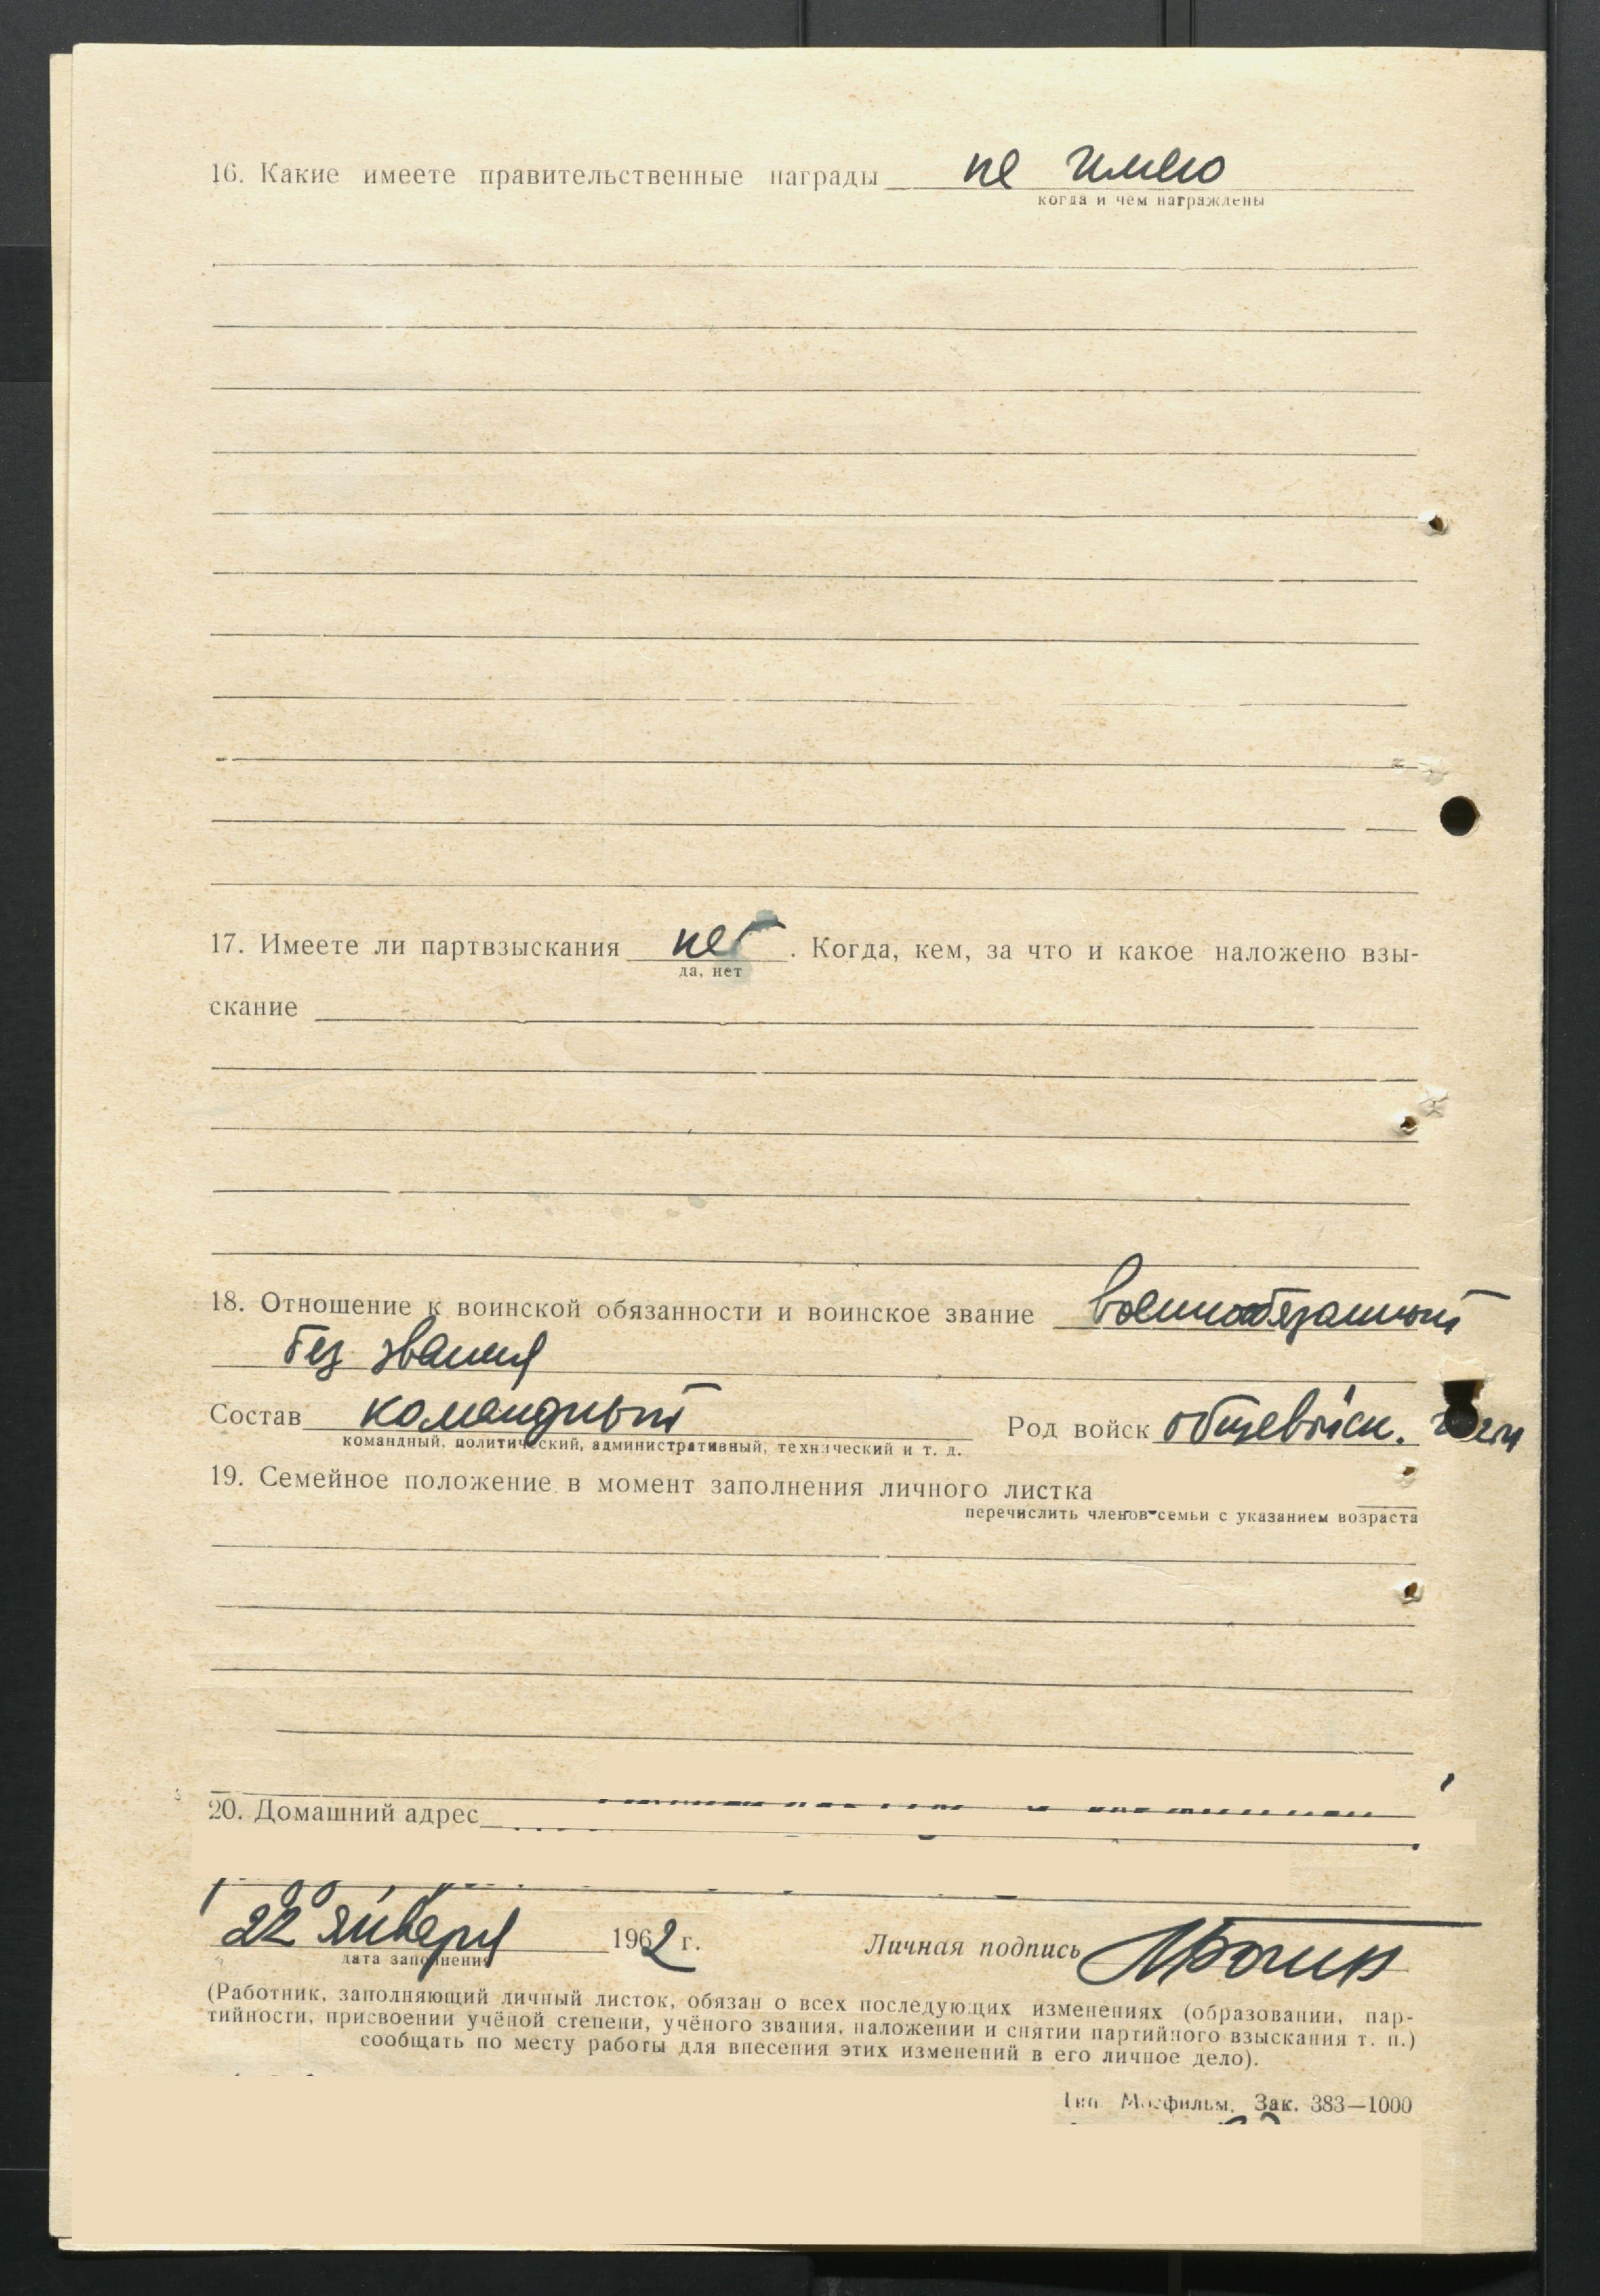 16. Какие имеете правительственные награды не имею
когда и чем награждены
17. Имеете ли партвзыскания нет. Когда, кем, за что и какое наложено взы-
да, нет
скание
18. Отношение к воинской обязанности и воинское звание военнообязанный
без звания
Состав командный Род войск общевойск.
командный, политический, административный, технический и т. д.
19. Семейное положение в момент заполнения личного листка
перечислить членов семьи с указанием возраста
20. Домашний адрес
22 января 1962 г. Личная подпись
дата заполнения
(Работник, заполняющий личный листок, обязан о всех последующих изменениях (образовании, пар-
тийности, присвоении учёной степени, учёного звания, наложении и снятии партийного взыскания т. п.)
сообщать по месту работы для внесения этих изменений в его личное дело).
Тип. Мосфильм. Зак. 383—1000